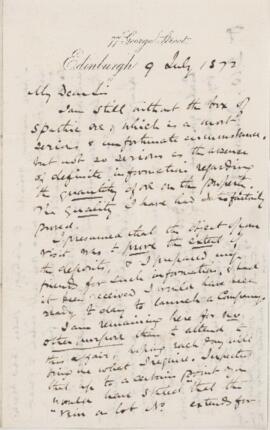 77 George Street
Edinburgh 9 July 1873
My Dear Sir
I am still without the box of
specific ore, which is a most
serious & unfortunate circumstance,
but not so serious is the absence
of definite information regarding
the quantity of ore on the property.
The quality I have had satisfactorily
proved.
I presumed that the object of your
visit was to prove the extent of
the deposits, & I prepared my
friends for such information, & had
it been received I would have been
ready to day to launch a Company.
I am remaining here for no
other purpose than to attend to
this affair, hoping each day will
bring me what I require. I expected
that up to a certain point you
would have stated that the
"Vein or lot No extends for